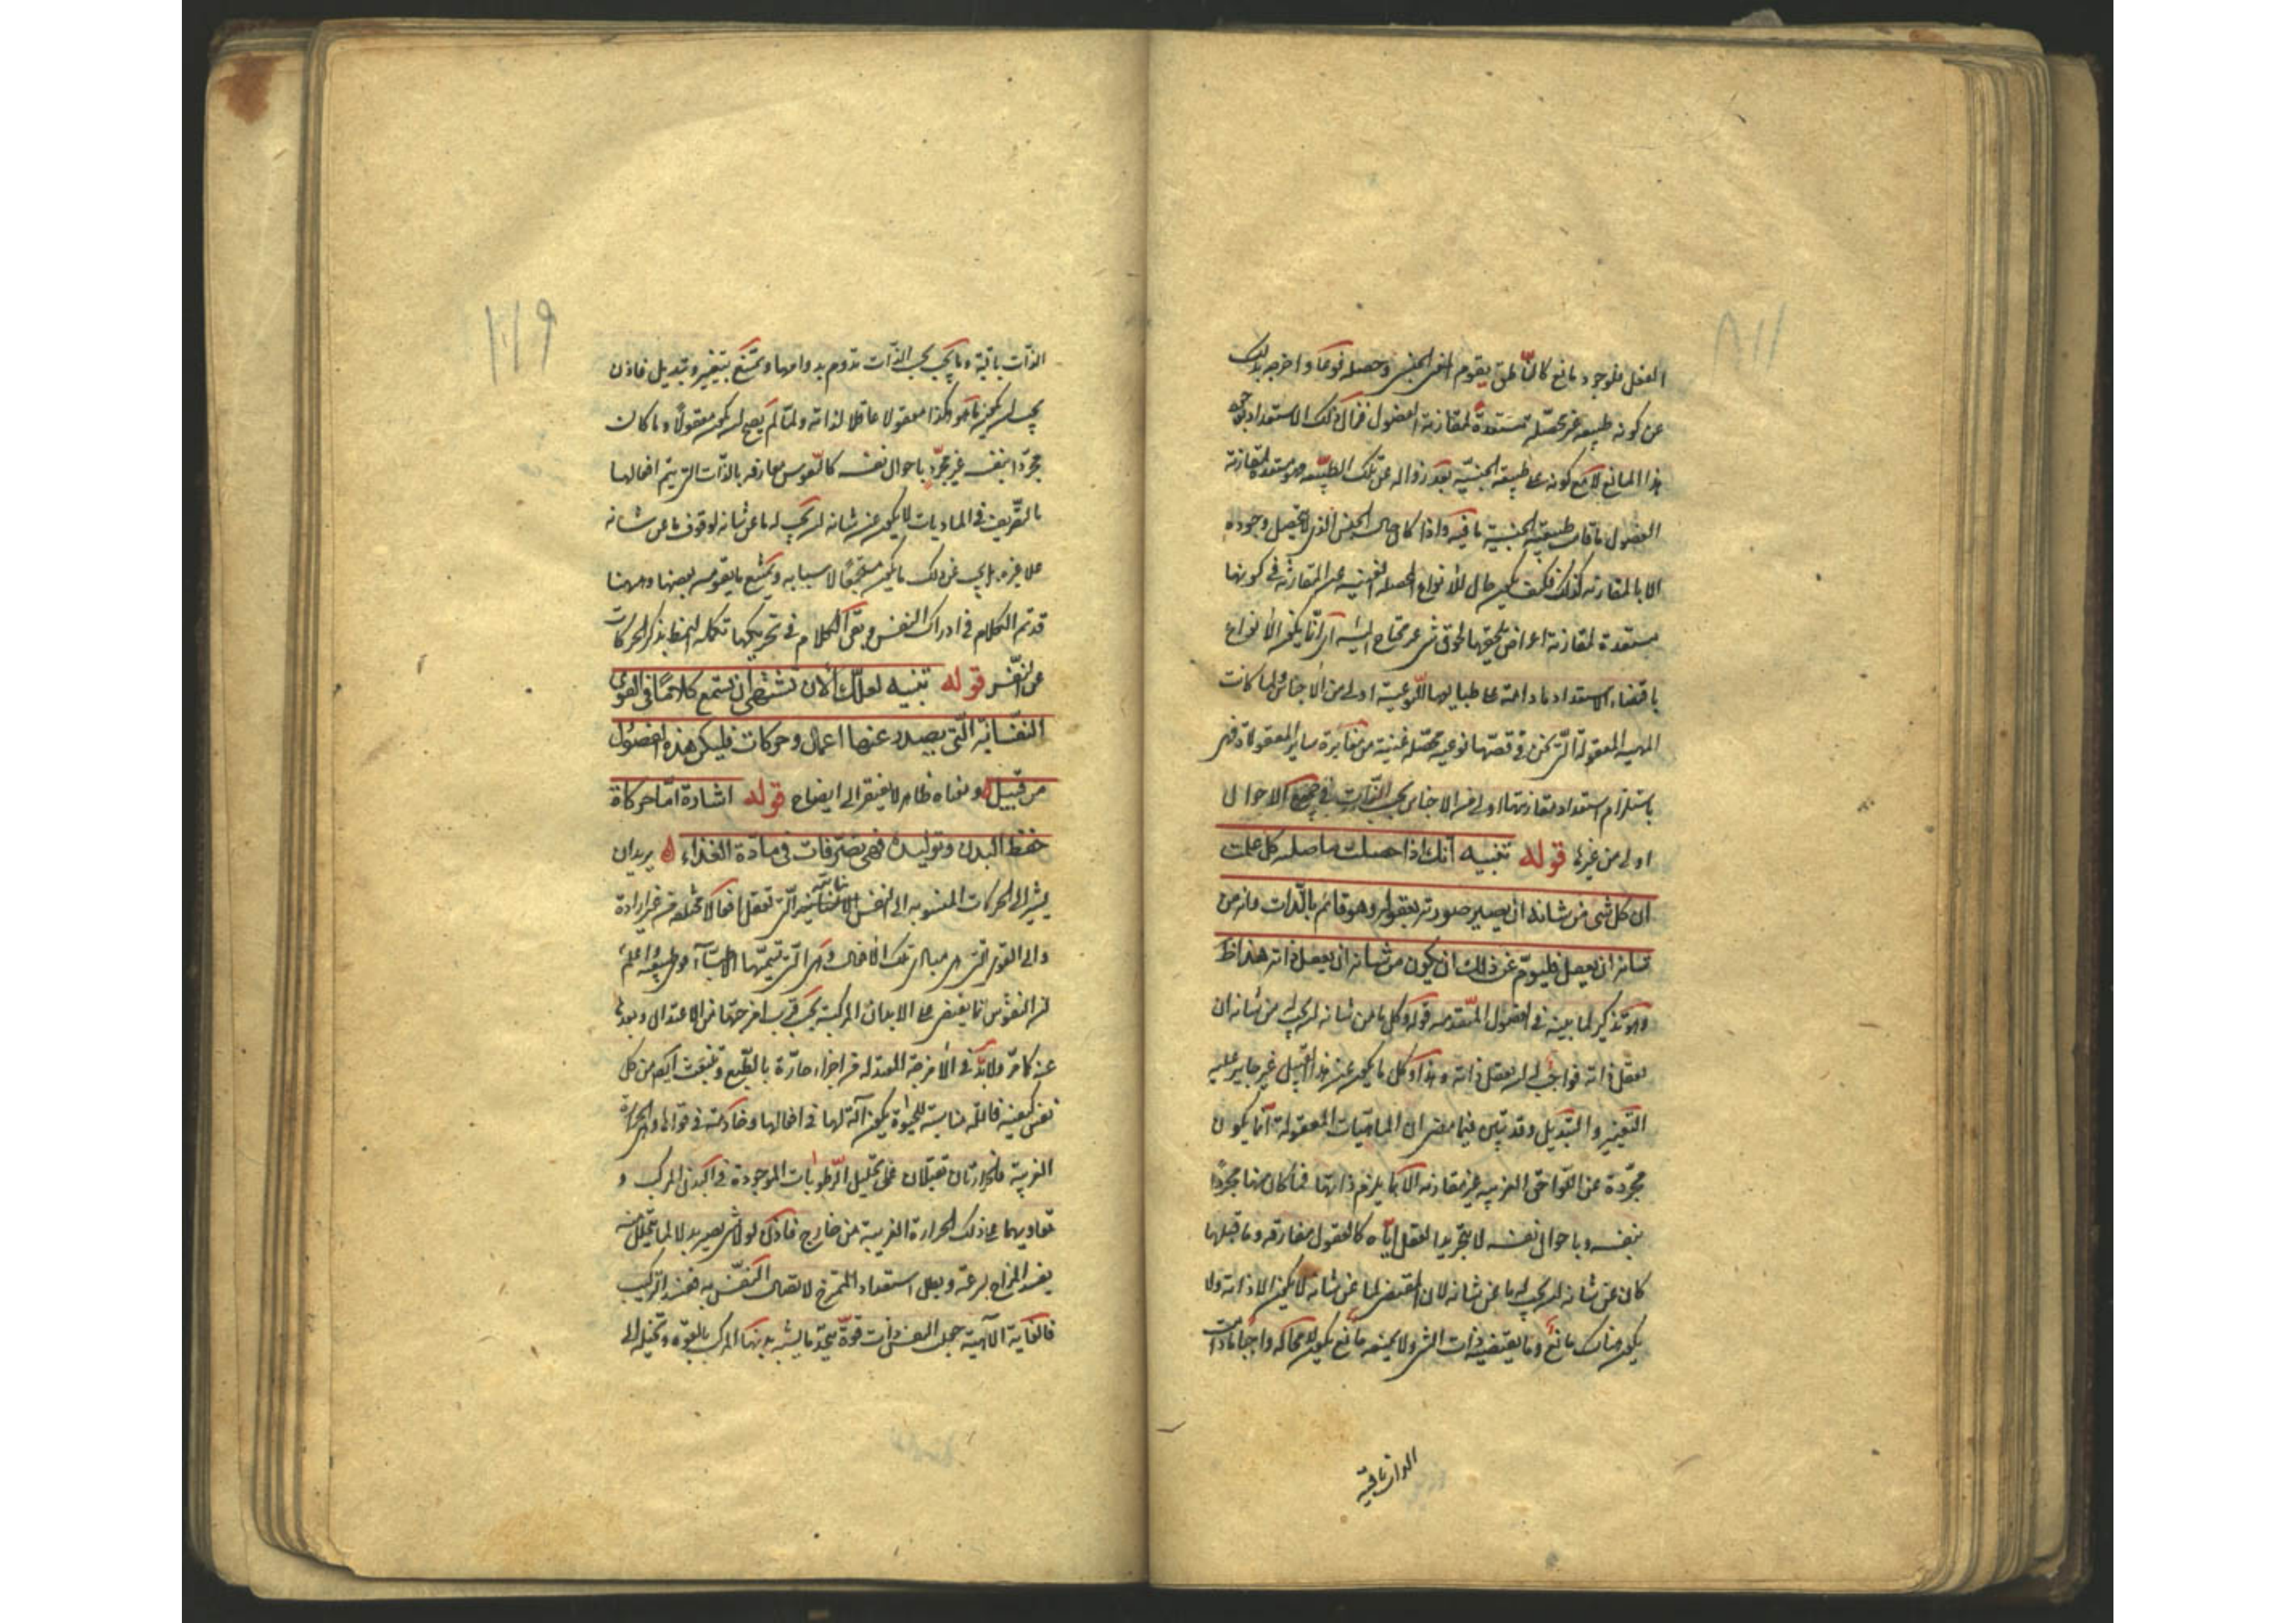 ١١٨
الفصل فلوجود مانع كالناطق يقوم الجنس وحصله نوعا واخرجه بذلك
عن كونه طبيعة غير محصلة مستعدة لمقارنة الفصول فزال ذلك الاستعداد
هذا المانع لا مع كونه على طبيعة الجنسية بعد زواله عن تلك الطبيعة مستعدة لمقارنة
الفصول ما كانت طبيعته الجنسية باقية واذا كان حال الجنس الذى لا يتحصل وجوده
الا بالمقارنة كذلك فكيف يكون حال الأنواع المحصلة الغنية عن المقارنة في كونها
مستعدة لمقارنة اعراض تلحقها لحوق شىء غير محتاج اليه آنا يكون الأنواع
باقتضاء الاستعداد ما دامت على طبايعها النوعية اولى من الأجناس ولما كانت
المهية المعقولة نوعية محصلة غنية من مقارنة ساير المعقولات فهى
باستلزام استعداد مقارنتها اولى من الاجناس بحسب الذات في جميع الاحوال
اولى من غيرها قوله تنبيه انك اذا حصلت ما اصلته لك علمت
ان كل شى من شانه ان يصير صورة معقولة وهو قائم بالذات فانه من
شانه ان يعقل فيلزم عن ذلك ان يكون من شانه ان يعقل ذاته هذا ظ
وهو تذكير لما بينه في الفصول المتقدمة قوله وكل ما من شانه ان يجب له من شانه ان
يعقل ذاته فواجب له ان يعقل ذاته وهذا وكل ما يكون من هذا القبيل غير جايز عليه
التغيير والتبديل وقد تبين فيما مضى ان الماهيات المعقولة انما يكون
مجردة عن اللواحق الغريبة غير مقارنة الا لما يلزم ذاتها فما كان منها مجردا
بنفسه وباحوال نفسه لا بتجريد العقل اياه كالعقول مفارقة وما قبلها
كان من شانه ان يجب له ما من شانه لان المقتضى لما من شانه لا يكون الا ذاته ولا
يكون هناك مانع وما يقتضيه ذات الشى ولا يمنعه مانع يكون لا محالة واجبا ما دامت
الذات باقية
١١٩
الذات باقية وما يجب بحسب الذات تدوم بدوامها ويمتنع بتغيير وتبديل فاذن
يجب ان يكون ما هو كذا معقولا عاقلا لذاته ولما لم يصح ان يكون معقولا وما كان
مجردا بنفسه غير مجرد باحوال نفسه كالنفوس مفارقة بالذات التى يتم افعالها
بالتصريف في الماديات لا يكون من شانه ان يجب له ما من شانه لوقوف ما من شانه
على غيره بل يجب من ذلك ما يكون مستجمعا لاسبابه ويمتنع ما يفوته بعضها وههنا
قد تم الكلام في ادراك النفس وبقى الكلام في تحريكها تكملة النمط بذكر الحركات
عن النفس قوله تنبيه لعلك الآن تشتهى ان تستمع كلاما في القوى
النفسانية التى يصدر عنها اعمال وحركات فليكن هذه الفصول
من قبيله ومعناه ظاهر لا يفتقر الى ايضاح قوله اشارة اما حركات
حفظ البدن وتوليده فهى تصرفات في مادة الغذاء يريد ان
يشير الى الحركات المنسوبة الى النفس النباتية التى تفعل افعالا مختلفة من غير ارادة
والى القوى التى هى مبادى تلك الافعال وهى التى تسميها الاطباء طبيعية اعلم
ان النفوس انما يفيض على الابدان المركبة بحسب قرب امزجتها من الاعتدال وبعدها
عنه كما مر ولا بد في الأمزجة المعتدلة من اجزاء حارة بالطبع وتنبعث ايضا من كل
نفس كيفية فاعلة مناسبة للحيوة يكون آلة لها في افعالها وخادمة في قواها وهى الحرارة
الغريزية فالحرارتان تقبلان على تحليل الرطوبات الموجودة في البدن المركب و
تعاونهما على ذلك الحرارة الغريبة من خارج فاذن لولا شى يصير بدلا لما يتحلل منه
يفسد المزاج بسرعة وبطل استعداد الممتزج لاتصال النفس به فيفسد التركيب
فالعناية الالهية جعلت النفس ذات قوة تجذب ما يشبه بدنها المركب بالقوة وتحيله الى